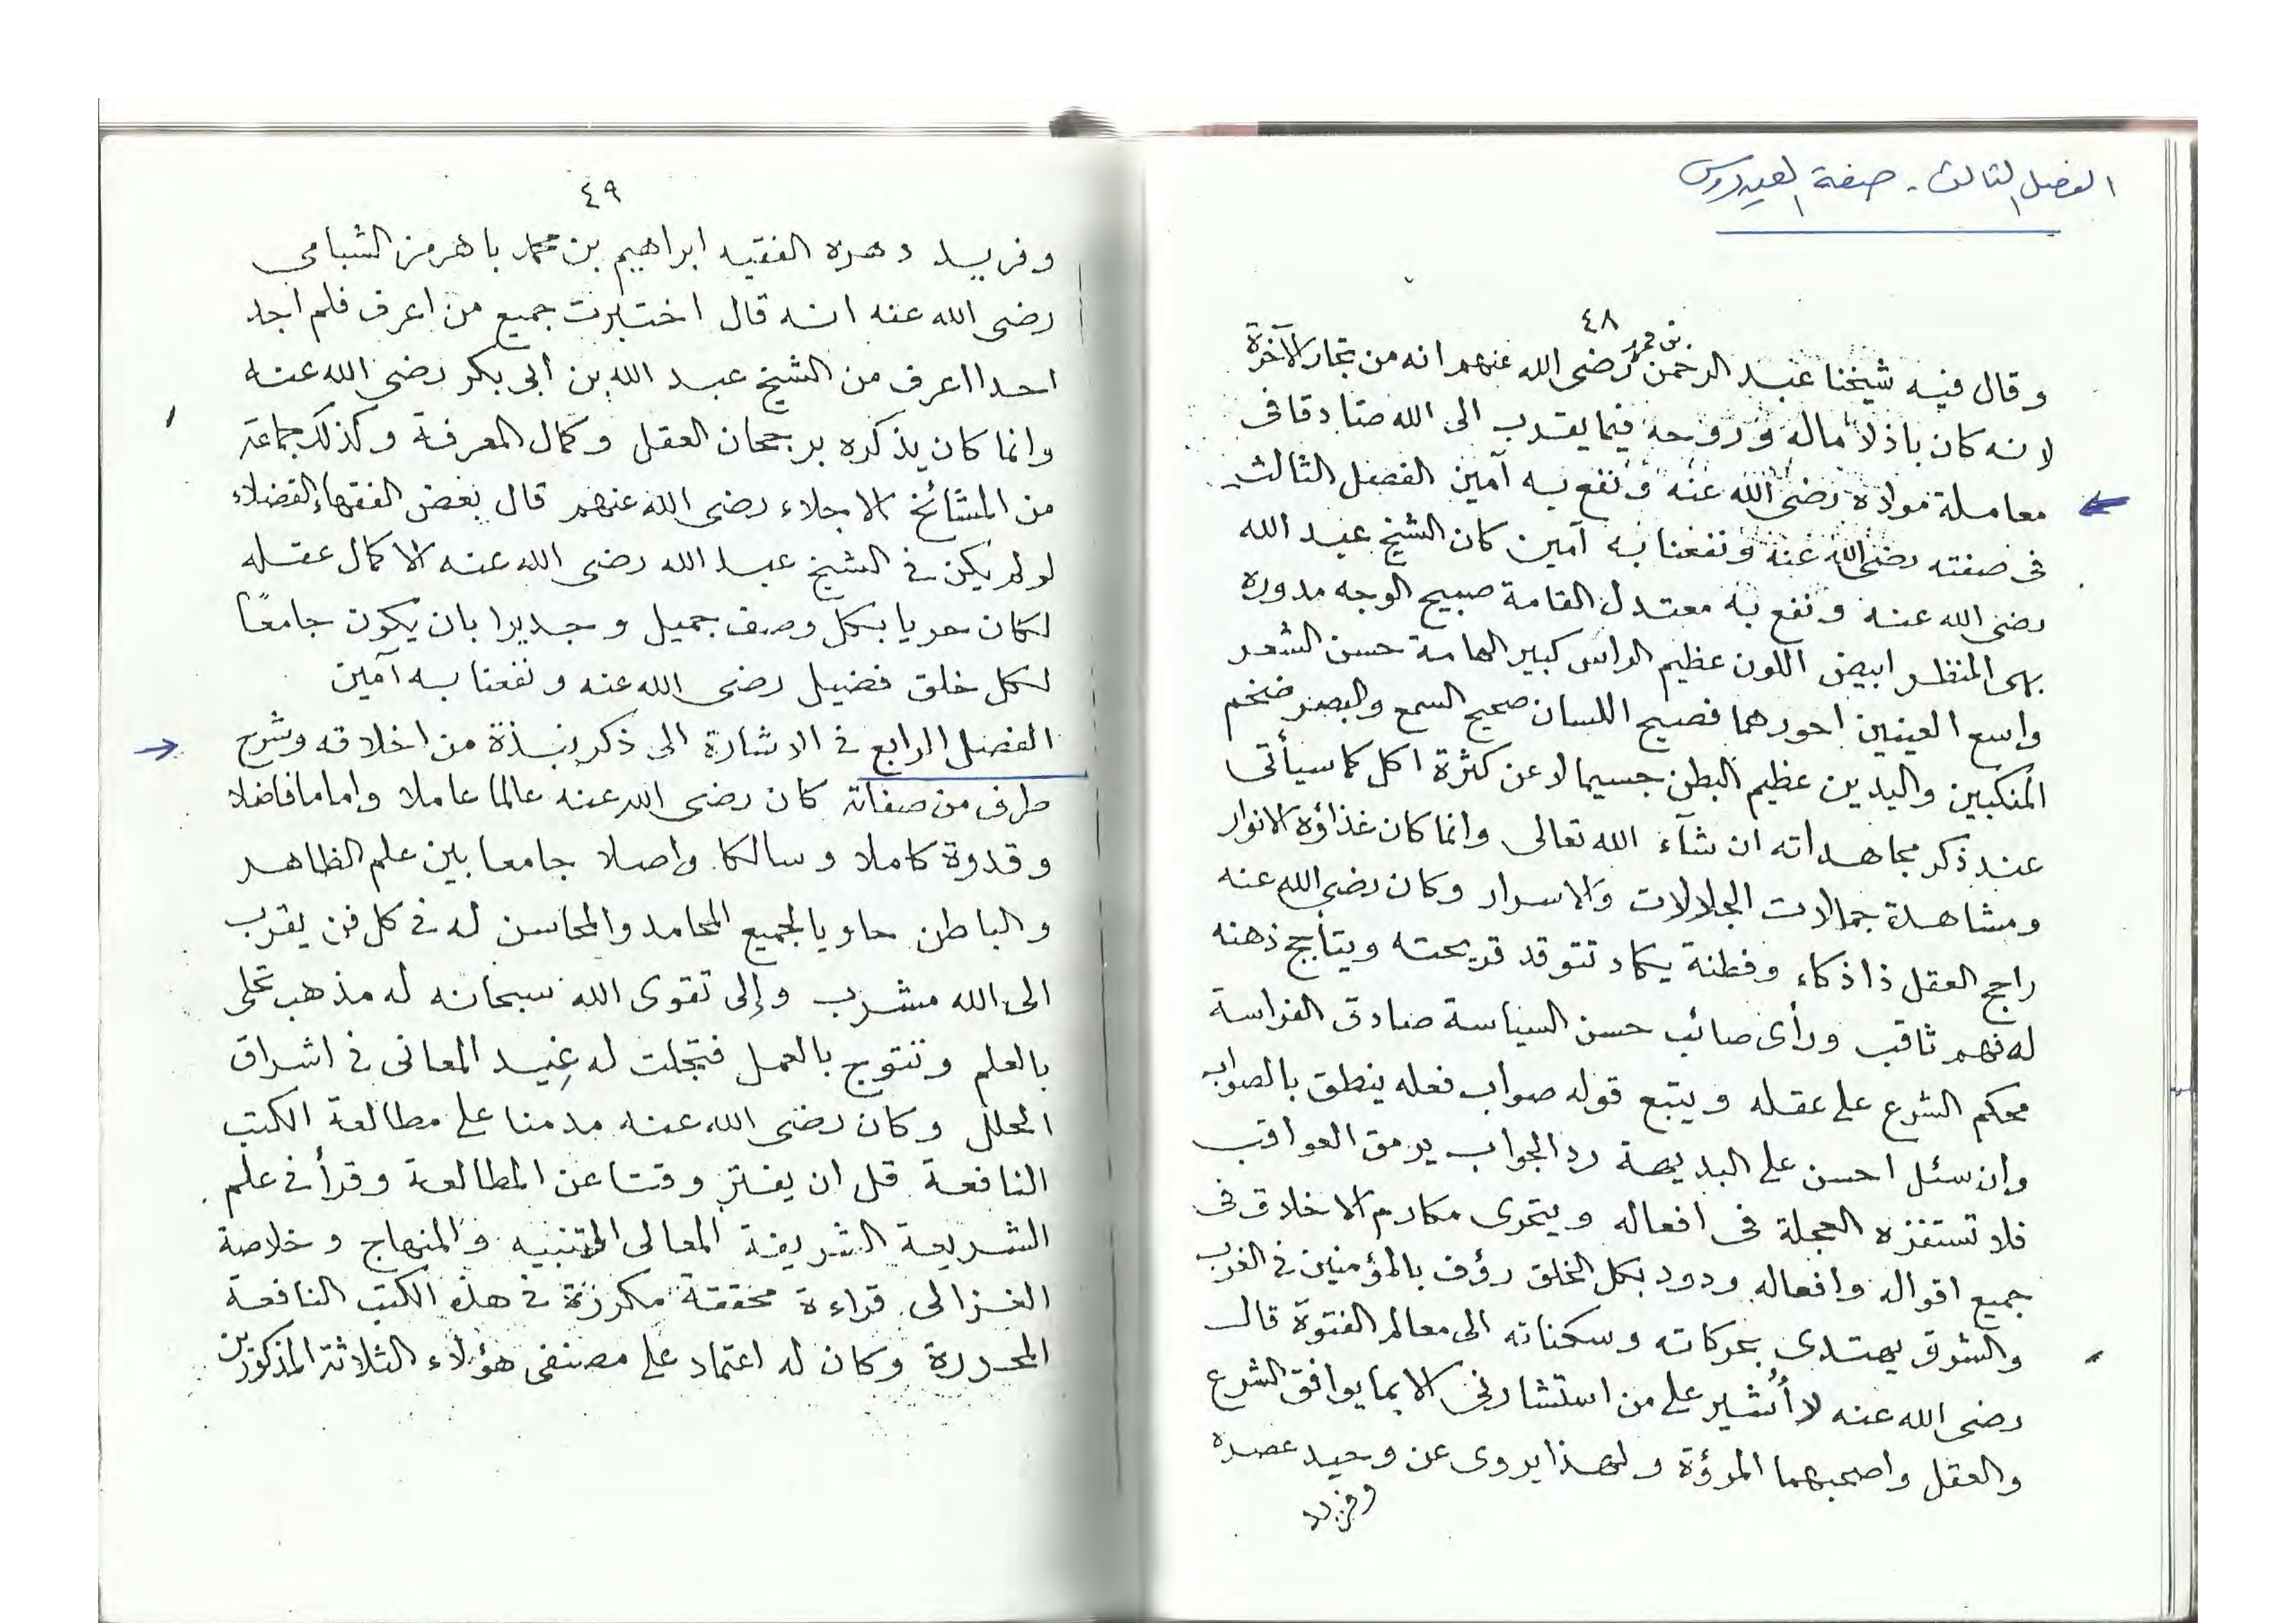 الفصل الثالث - صفة العيدروس
٤٨
بن محمد
وقال فيه شيخنا عبد الرحمن رضى الله عنهم انه من تجار الآخرة
لانه كان باذلا ماله وروحه فيما يقرب الى الله صادقا فى
معاملة مولاه رضى الله عنه ونفع به آمين الفصل الثالث
فى صفته رضى الله عنه ونفعنا به آمين كان الشيخ عبد الله
رضى الله عنه ونفع به معتدل القامة صبيح الوجه مدوره
بهى المنظر ابيض اللون عظيم الراس كبير الهامة حسن الشعر
واسع العينين احورهما فصيح اللسان صحيح السمع والبصر ضخم
المنكبين واليدين عظيم البطن جسيما لا عن كثرة اكل كما سيأتى
عند ذكر مجاهداته ان شآء الله تعالى وانما كان غذاؤه الانوار
ومشاهدة جمالات الجلالات والاسرار وكان رضى الله عنه
راجح العقل ذا ذكاء وفطنة يكاد تتوقد قريحته ويتأجج ذهنه
له فهم ثاقب ورأى صائب حسن السياسة صادق الفراسة
محكم الشرع على عقله ويتبع قوله صواب فعله ينطق بالصواب
وان سئل احسن على البديهة رد الجواب يرمق العواقب
فلا تستفزه العجلة فى افعاله ويتحرى مكارم الاخلاق فى
جميع اقواله وافعاله ودود بكل الخلق رؤف بالمؤمنين فى الغرب
والشرق يهتدى بحركاته وسكناته الى معالم الفتوة قال
رضى الله عنه لا أشير على من استشارنى الا بما يوافق الشرع
والعقل واصحبهما المروءة ولهذا يروى عن وحيد عصره
وفريد
٤٩
وفريد دهره الفقيه ابراهيم بن محمد باهرمز الشبامي
رضى الله عنه انه قال اختبرت جميع من اعرف فلم اجد
احدا اعرف من الشيخ عبد الله بن ابى بكر رضى الله عنه
وانما كان يذكره برجحان العقل وكمال المعرفة وكذلك جماعة
من المشائخ الاجلاء رضى الله عنهم قال بعض الفقهاء الفضلاء
لو لم يكن فى الشيخ عبد الله رضى الله عنه الا كمال عقله
لكان حريا بكل وصف جميل وجديرا بان يكون جامعًا
لكل خلق فضيل رضى الله عنه ونفعنا به آمين
الفصل الرابع فى الاشارة الى ذكر نبذة من اخلاقه وشرح
طرف من صفاته كان رضى الله عنه عالما عاملا واماما فاضلا
وقدوة كاملا وسالكا واصلا جامعا بين علم الظاهر
والباطن حاويا لجميع المحامد والمحاسن له فى كل فن يقرب
الى الله مشرب وإلى تقوى الله سبحانه له مذهب تحلى
بالعلم وتتوج بالعمل فتجلت له غِيد المعانى فى اشراق
الحلل وكان رضى الله عنه مدمنا على مطالعة الكتب
النافعة قل ان يفتر وقتا عن المطالعة وقرأ فى علم
الشريعة الشريفة المعالى التنبيه والمنهاج وخلاصة
الغزالى قراءة محققة مكررة فى هذه الكتب النافعة
المحررة وكان له اعتماد على مصنفى هؤلاء الثلاثة المذكورين